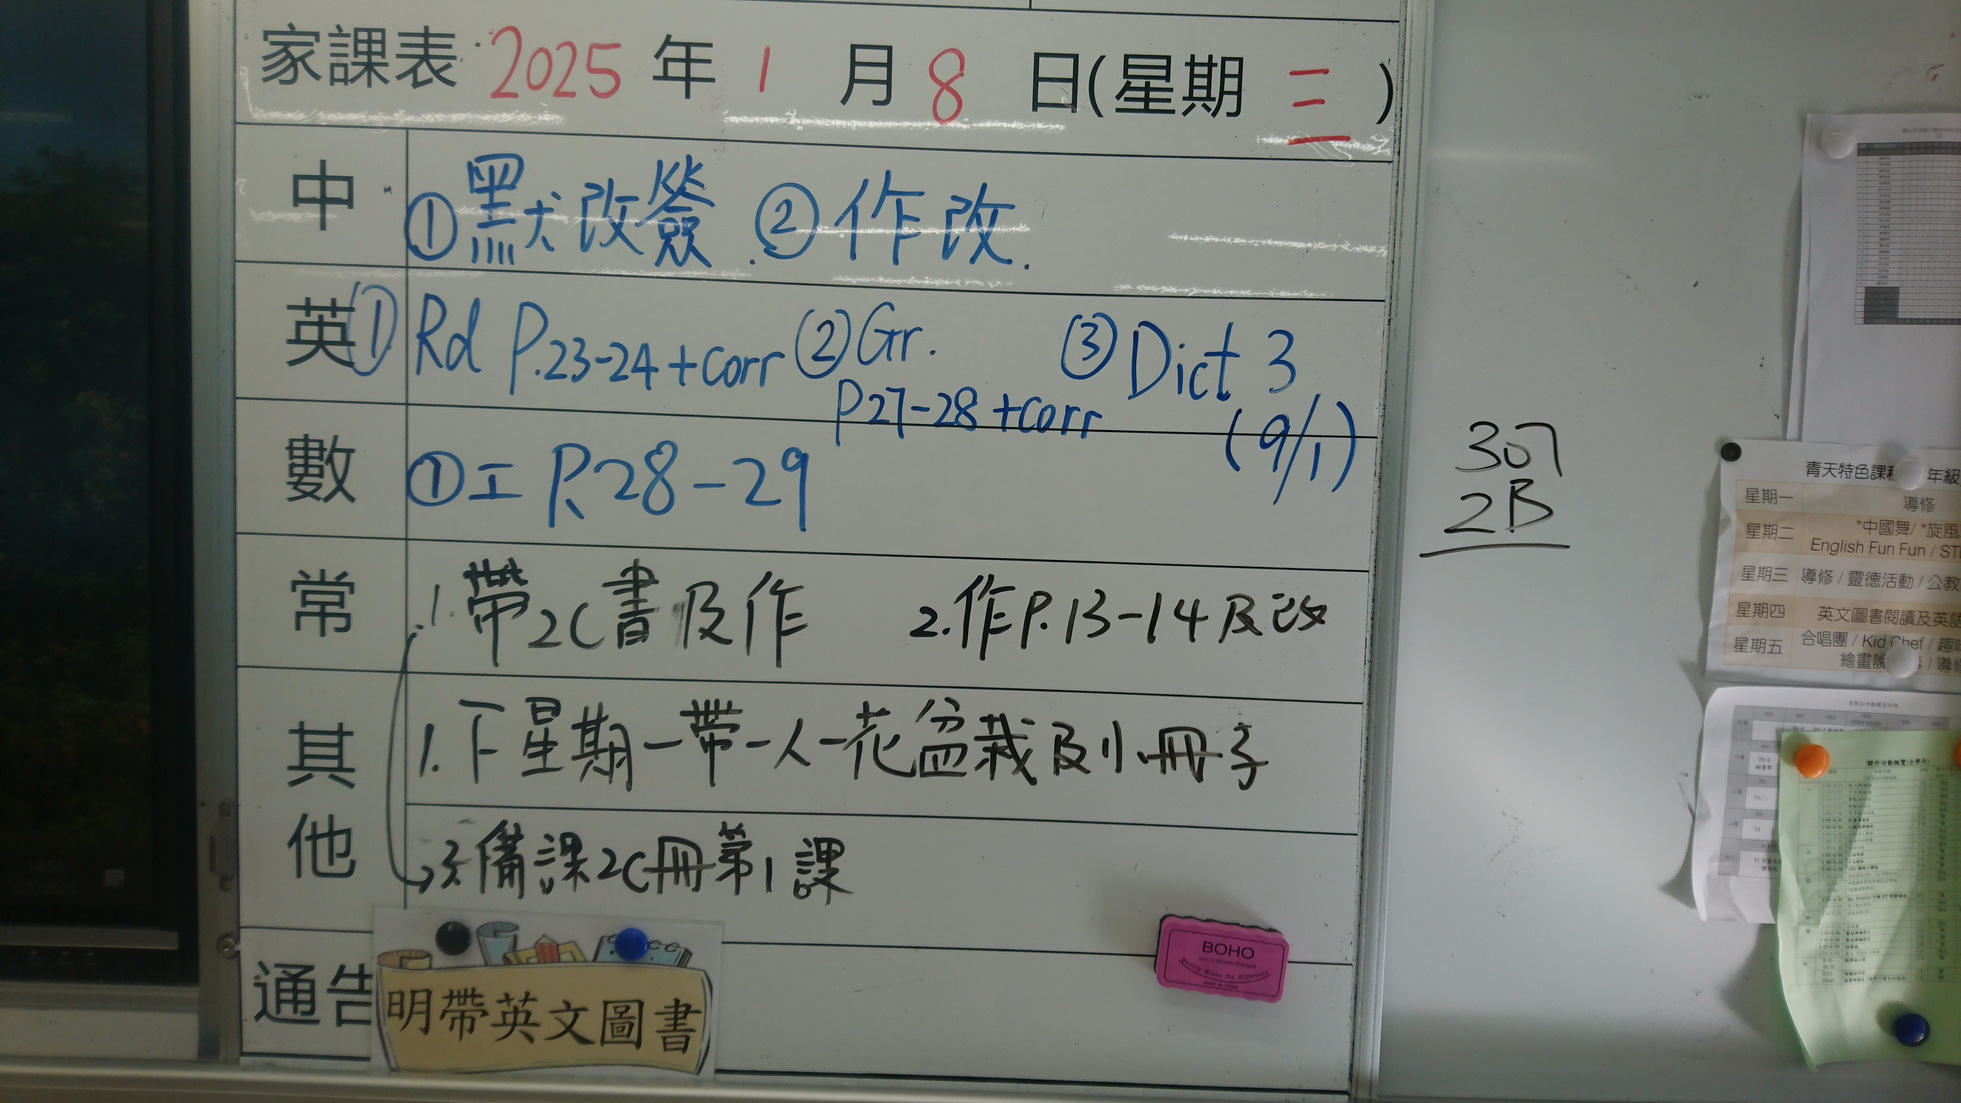 家課表 2025 年 1 月 8 日(星期 三 )
中 ①默改簽 ②作改.
英 ① Rd P.23-24+corr ② Gr. P27-28+corr ③ Dict 3 (9/1)
數 ①工 P.28-29
常 1.帶2C書及作 2.作P.13-14及改
其他
1.下星期一帶一人一花盆栽及小冊子
3.備課2C冊第1課
通告
明帶英文圖書
BOHO
307
2B
青天特色課 年級
星期一 導修
星期二 *中國舞/ *旋風
English Fun Fun / ST
星期三 導修 / 靈德活動 / 公教
星期四 英文圖書閱讀及英語
星期五 合唱團 / Kid Chef / 趣
繪畫 / 導修